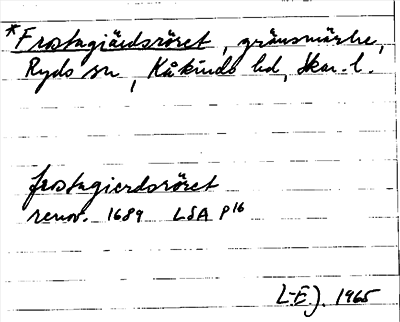 *Frostagiärdsröret, gränsmärke,
Ryds sn, Kåkinds hd, Skar. l.
frostagierdsröret
renov. 1689 LSA P16
L-E J. 1965